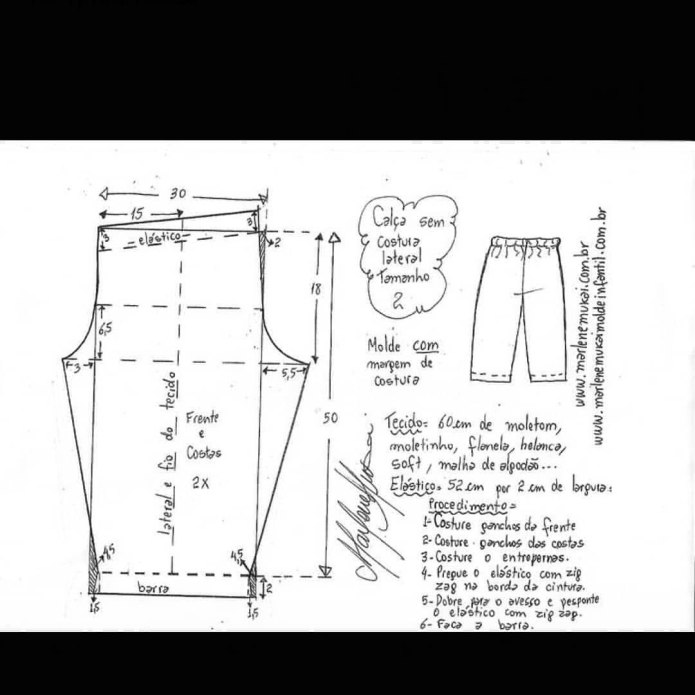 30
15
3
3
elástico
2
Calça sem
costura
lateral
Tamanho
2
18
6,5
3
5,5
50
Molde com
margem de
costura
lateral e fio do tecido
Frente
e
Costas
2X
4,5
4,5
barra
2
1,5
1,5
Tecido= 60cm de moletom,
moletinho, flanela, helanca,
soft, malha de algodão...
Elástico= 52cm por 2cm de largura:
Procedimento=
1- Costure ganchos da frente
2- Costure ganchos das costas
3- Costure o entrepernas.
4- Pregue o elástico com zig
zag na borda da cintura.
5- Dobre para o avesso e pesponte
o elástico com zig zag.
6- Faça a barra.
www.marlenemukai.com.br
www.marlenemukaimoldeinfantil.com.br